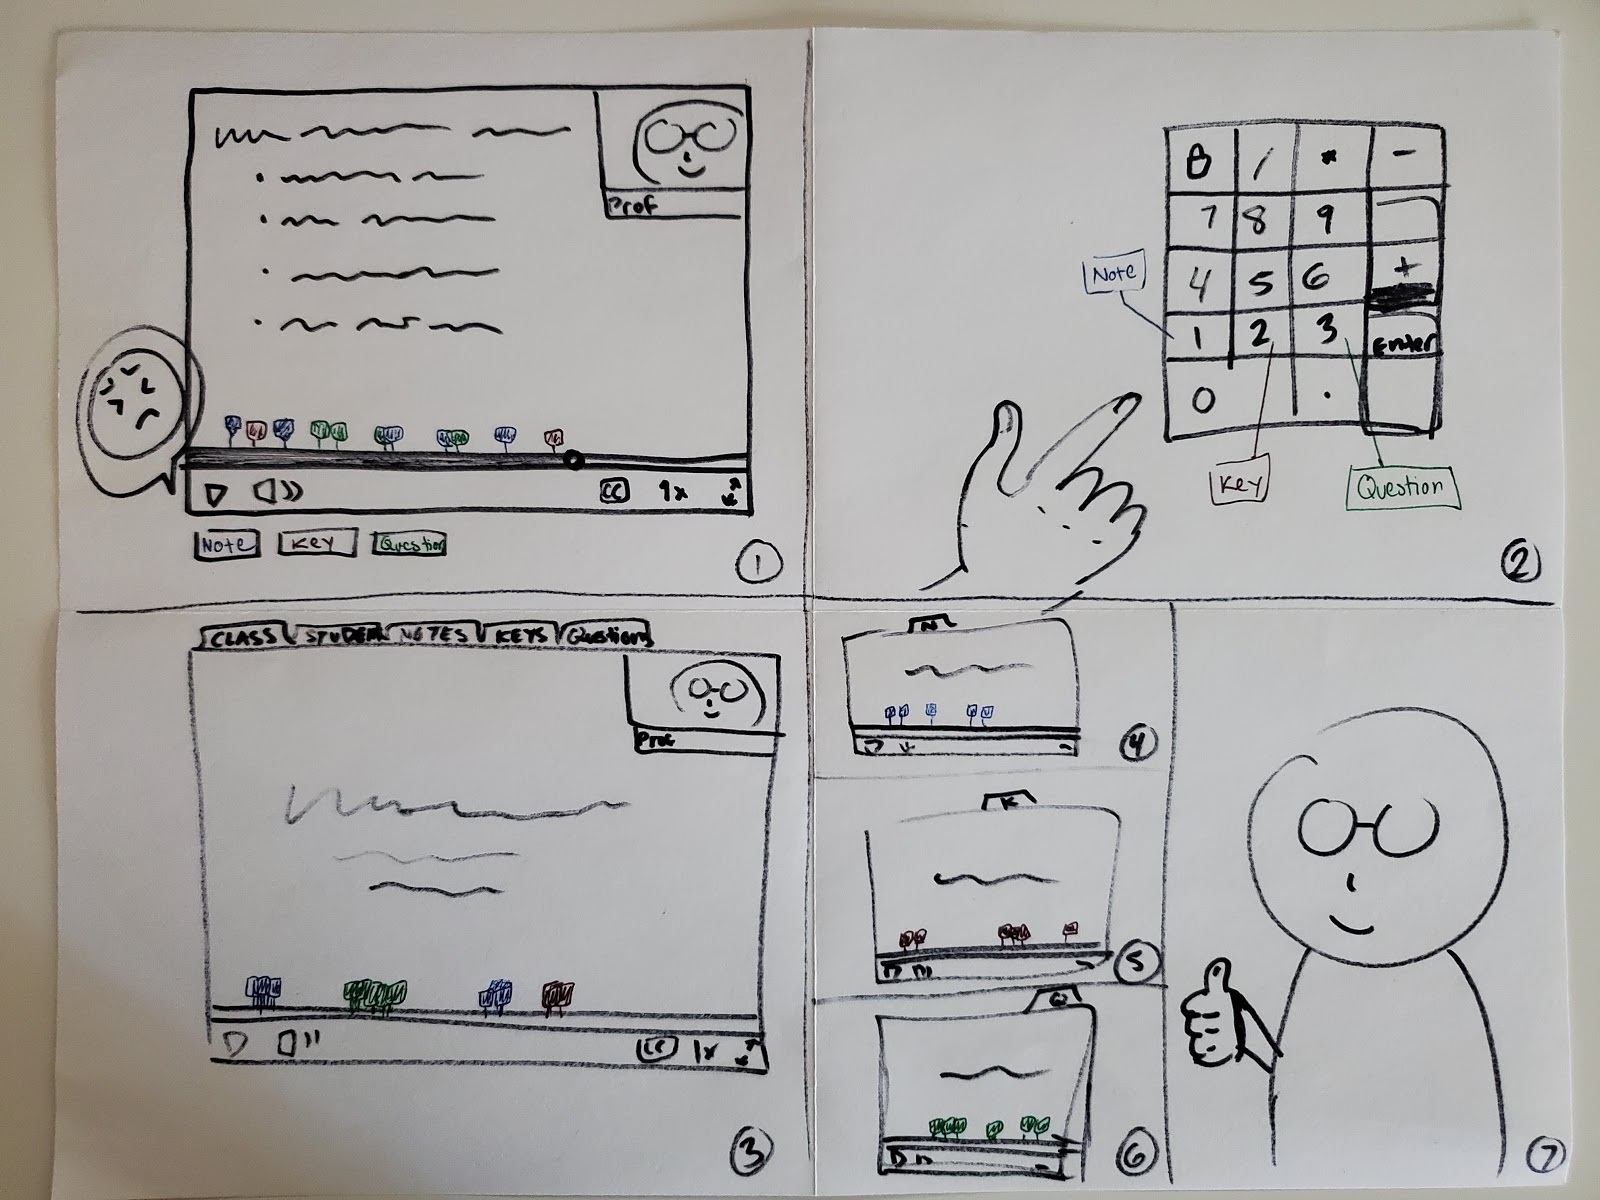 Prof
CC 1x
Note Key Question
1
8 / * -
7 8 9
4 5 6 +
1 2 3 Enter
0 .
Note
Key
Question
2
CLASS STUDENT NOTES KEYS Questions
Prof
CC 1x
3
N
4
K
5
Q
6
7